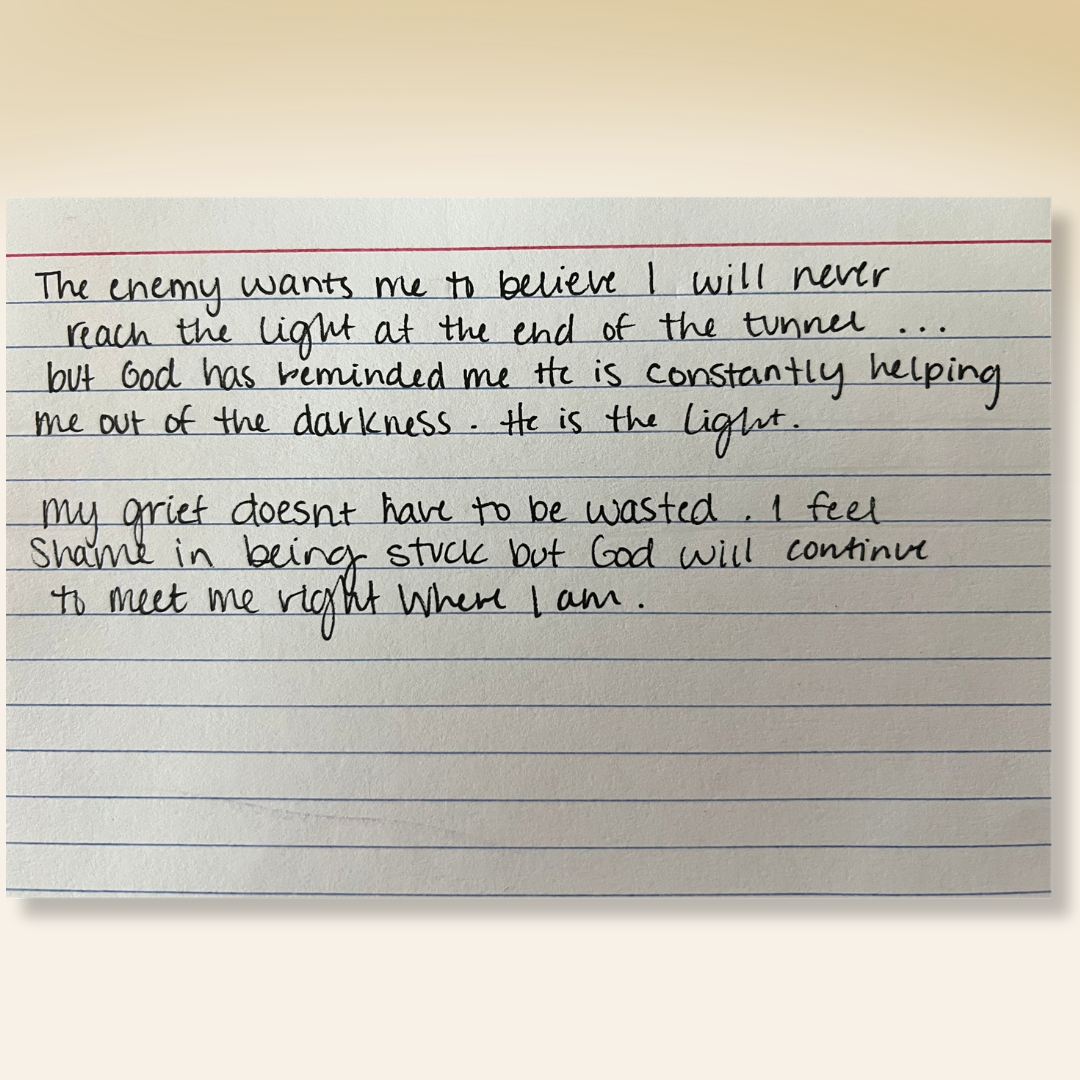 The enemy wants me to believe I will never
reach the light at the end of the tunnel ...
but God has reminded me He is constantly helping
me out of the darkness. He is the light.
my grief doesnt have to be wasted. I feel
Shame in being stuck but God will continue
to meet me right where I am.